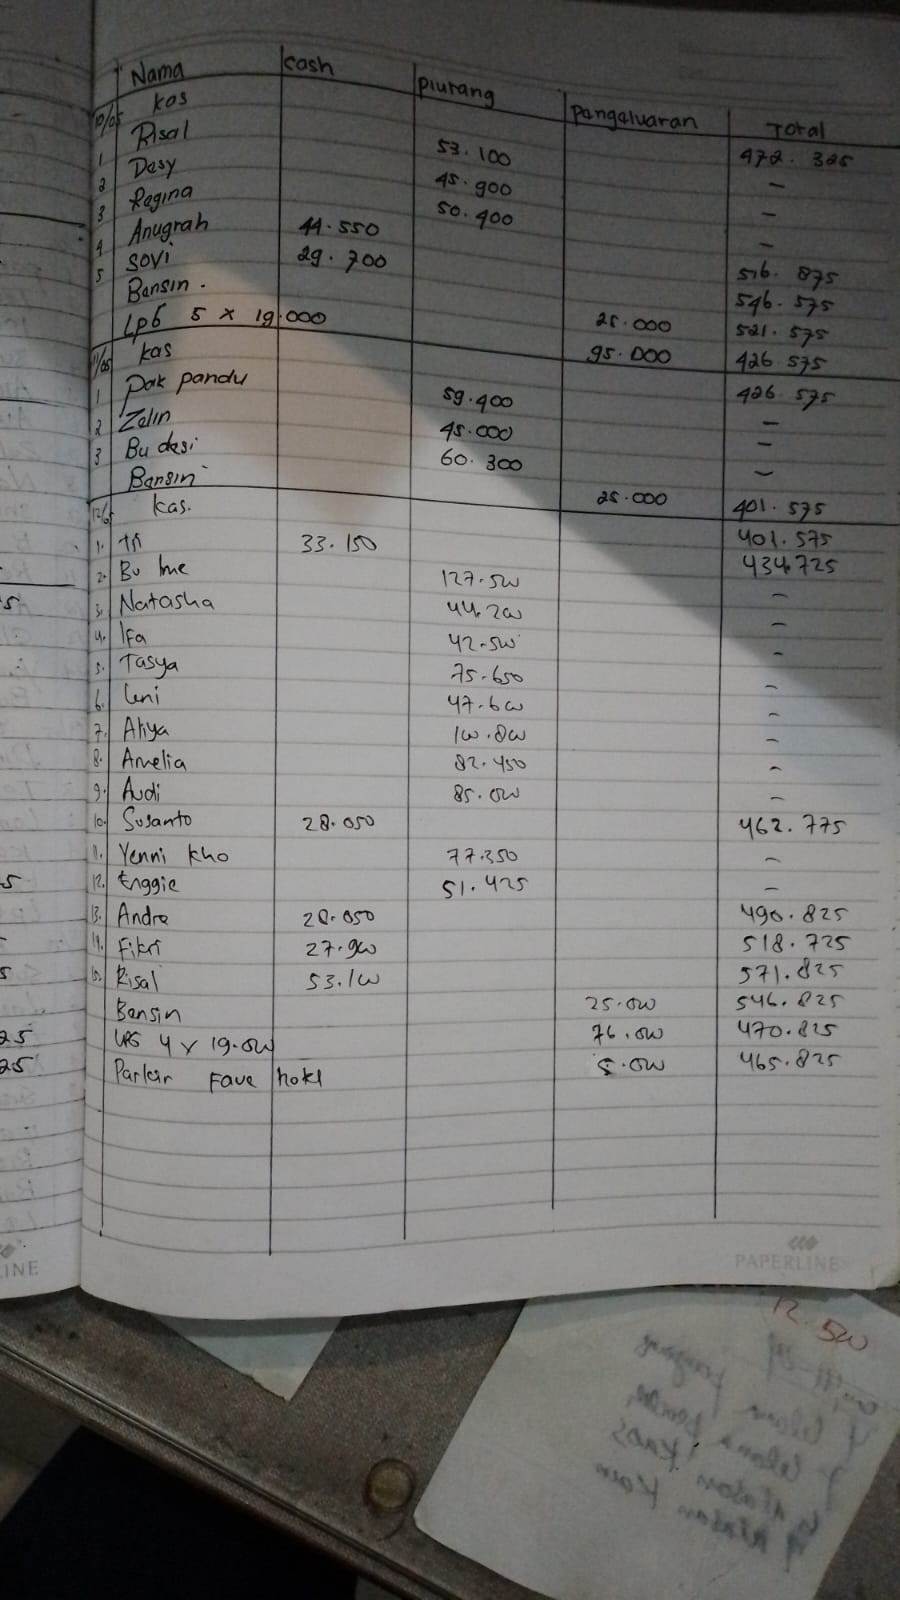 Nama cash piutang Pengeluaran Total
10/05 kas 472.325
1 Risal 53.100 -
2 Desy 45.900 -
3 Regina 50.400 -
4 Anugrah 44.550 516.875
5 Sovi 29.700 546.575
Bensin. 25.000 521.575
Lpg 5 x 19.000 95.000 426.575
11/05 kas 426.575
1 Pak pandu 59.400 -
2 Zelin 45.000 -
3 Bu desi 60.300 -
Bensin 25.000 401.575
12/05 kas. 401.575
1. Tri 33.150 434.725
2. Bu Ime 127.500 -
3. Natasha 44.200 -
4. Ifa 42.500 -
5. Tasya 75.650 -
6. Leni 47.600 -
7. Aliya 100.800 -
8. Amelia 82.450 -
9. Audi 85.000 -
10. Susanto 28.050 462.775
11. Yenni kho 77.350 -
12. Enggie 51.425 -
13. Andre 28.050 490.825
14. Fikri 27.900 518.725
15. Risal 53.100 571.825
Bensin 25.000 546.825
LPG 4 x 19.000 76.000 470.825
Parkir Fave hotel 5.000 465.825
PAPERLINE
12.500